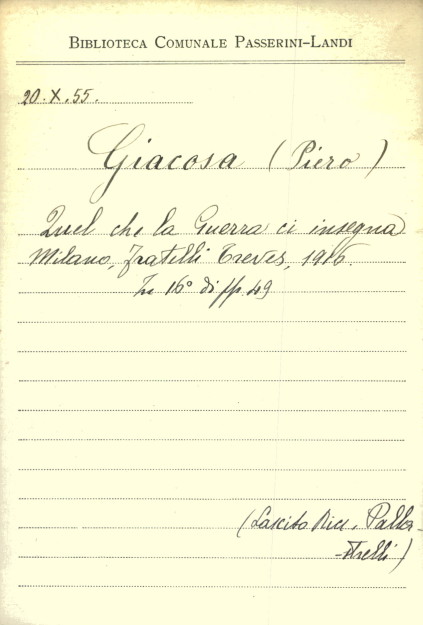 BIBLIOTECA COMUNALE PASSERINI-LANDI
20.X.55.
Giacosa (Piero)
Quel che la Guerra ci insegna
Milano, Fratelli Treves, 1915.
In 16° di pp. 49
(Lascito Ricc. Pallas-
-trelli)